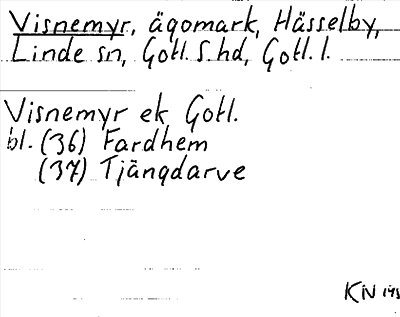 Visnemyr, ägomark, Hässelby,
Linde sn, Gotl. S. hd, Gotl. l.
Visnemyr ek Gotl.
bl. (36) Fardhem
(37) Tjängdarve
KN